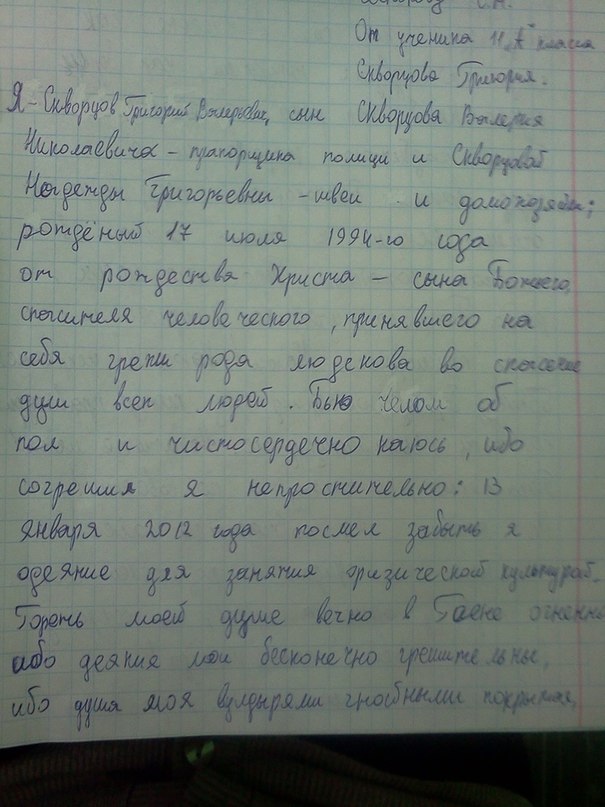 С.Н.
От ученика 11 „А" класса
Скворцова Григория.
Я - Скворцов Григорий Валерьевич, сын Скворцова Валерия
Николаевича - прапорщика полиции и Скворцовой
Надежды Григорьевны - швеи и домохозяйки;
рождёный 17 июля 1994-го года
от рождества Христа - сына Божьего,
спасителя человеческого, принявшего на
себя грехи рода людскова во спасение
души всех людей. Бью челом об
пол и чистосердечно каюсь, ибо
согрешил я непростительно: 13
января 2012 года посмел забыть я
одеяние для занятия физической культурой.
Гореть моей душе вечно в Гаене огненной
ибо деяния мои бесконечно грешительны,
ибо душа моя вулдырями гнойными покрытая,